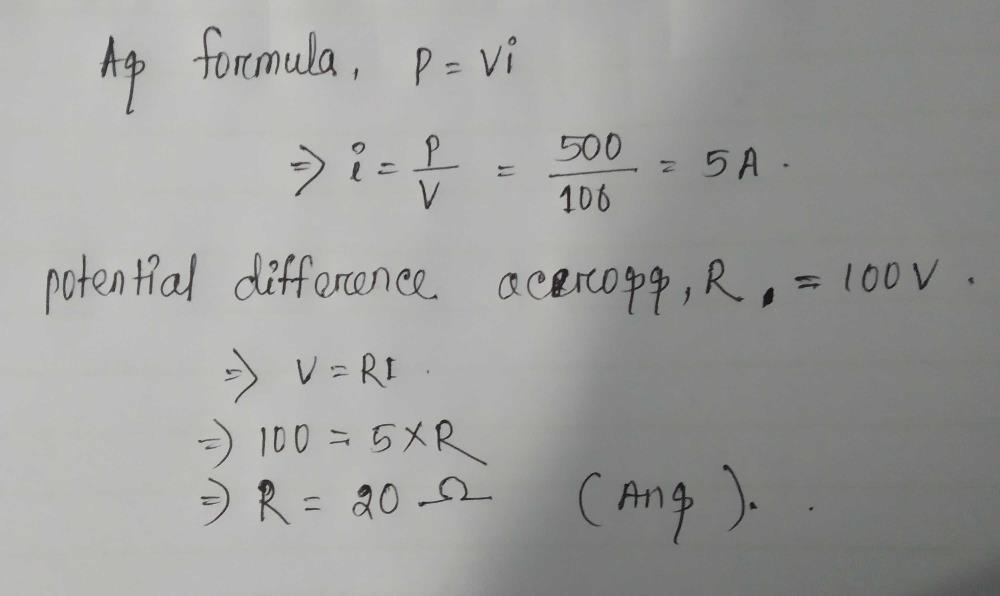 As formula, P = Vi
⇒ i = P/V = 500/100 = 5A.
potential difference across, R, = 100V.
⇒ V = RI.
⇒ 100 = 5×R
⇒ R = 20 Ω (Ans).